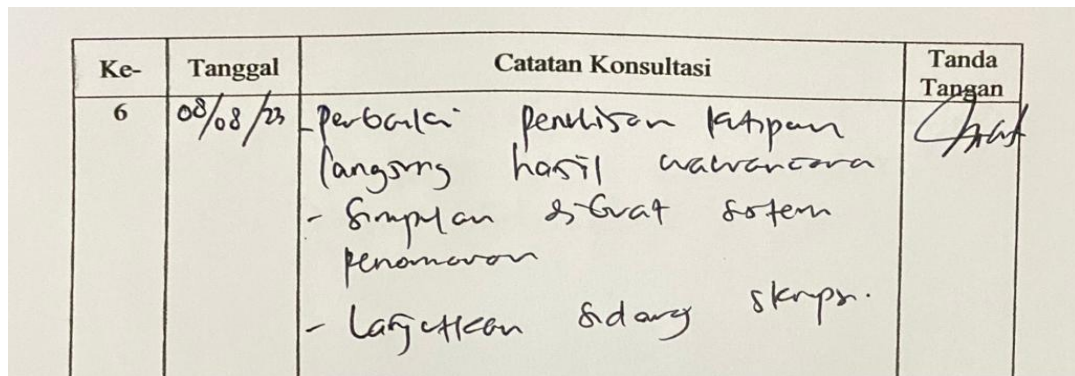 Ke- Tanggal Catatan Konsultasi Tanda Tangan
6 08/08/23 - Perbaiki penulisan kutipan
langsung hasil wawancara
- Simpulan dibuat sistem
penomoran
- Lanjutkan sidang skripsi.